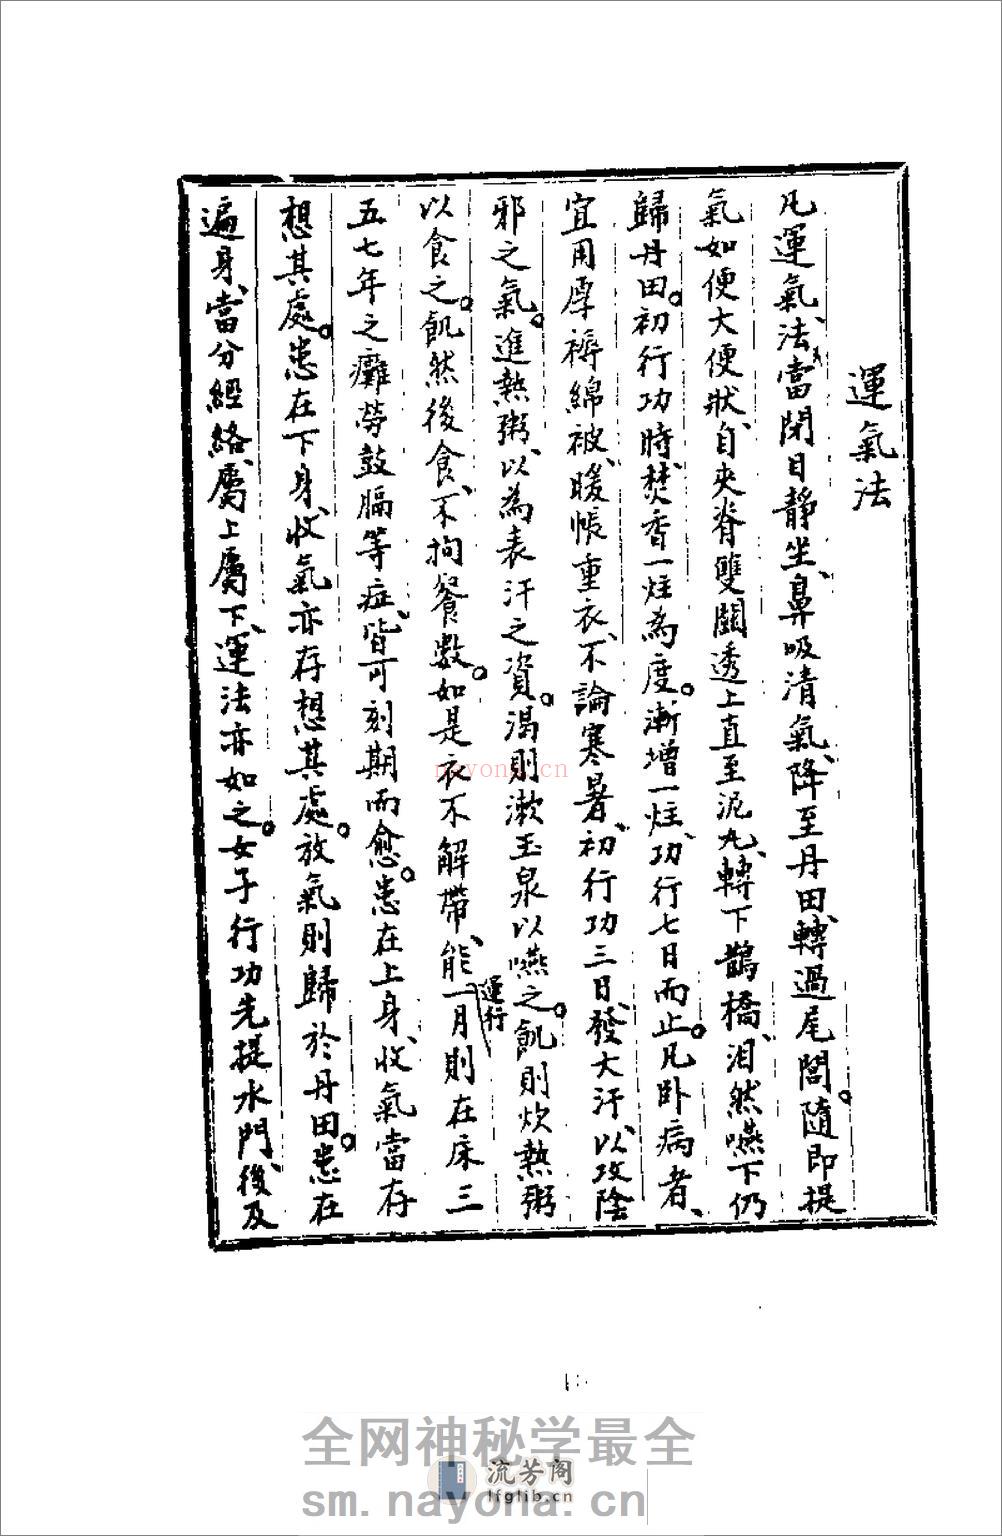 運氣法
凡運氣、法當閉目靜坐、鼻吸清氣、降至丹田、轉過尾閭。隨即提
氣如便大便狀、自夾脊雙關透上直至泥丸、轉下鵲橋、汩然嚥下仍
歸丹田。初行功時、焚香一炷為度。漸增一炷、功行七日而止。凡卧病者、
宜用厚褥綿被、暖帳重衣、不論寒暑、初行功三日、發大汗、以攻陰
邪之氣。進熱粥、以為表汗之資。渴則漱玉泉以嚥之。飢則炊熱粥
以食之。飢然後食、不拘餐數。如是衣不解帶、能運行一月則在床三
五七年之癱勞鼓膈等症、皆可刻期而愈。患在上身、收氣當存
想其處。患在下身、收氣亦存想其處。放氣則歸於丹田。患在
遍身、當分經絡、屬上屬下、運法亦如之。女子行功先提水門、後及
nayona.cn
全网神秘学最全
流芳阁
lfglib.cn
sm.nayona.cn